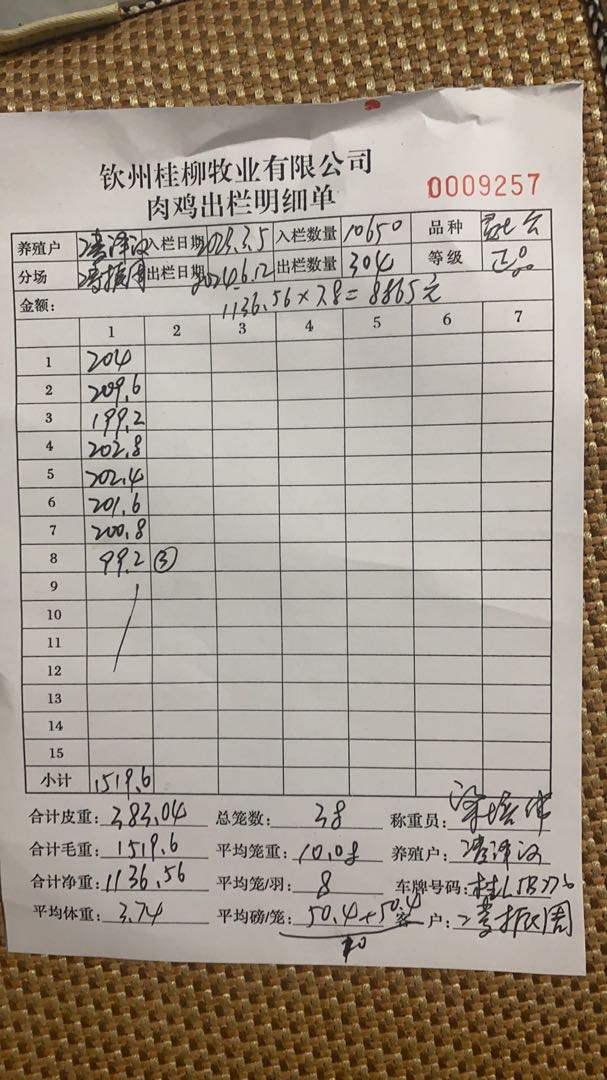 钦州桂柳牧业有限公司
肉鸡出栏明细单
0009257
养殖户 入栏日期 入栏数量 10650 品种
分场 出栏日期 2024.6.12 出栏数量 304 等级 正品
金额: 1136.56×7.8=8865元
1 2 3 4 5 6 7
1 204
2 209.6
3 199.2
4 202.8
5 202.4
6 201.6
7 200.8
8 99.2 ③
9
10
11
12
13
14
15
小计 1519.6
合计皮重: 383.04 总笼数: 38 称重员:
合计毛重: 1519.6 平均笼重: 10.08 养殖户:
合计净重: 1136.56 平均笼/羽: 8 车牌号码:
平均体重: 3.74 平均磅/笼: 50.4+50.4 客户: